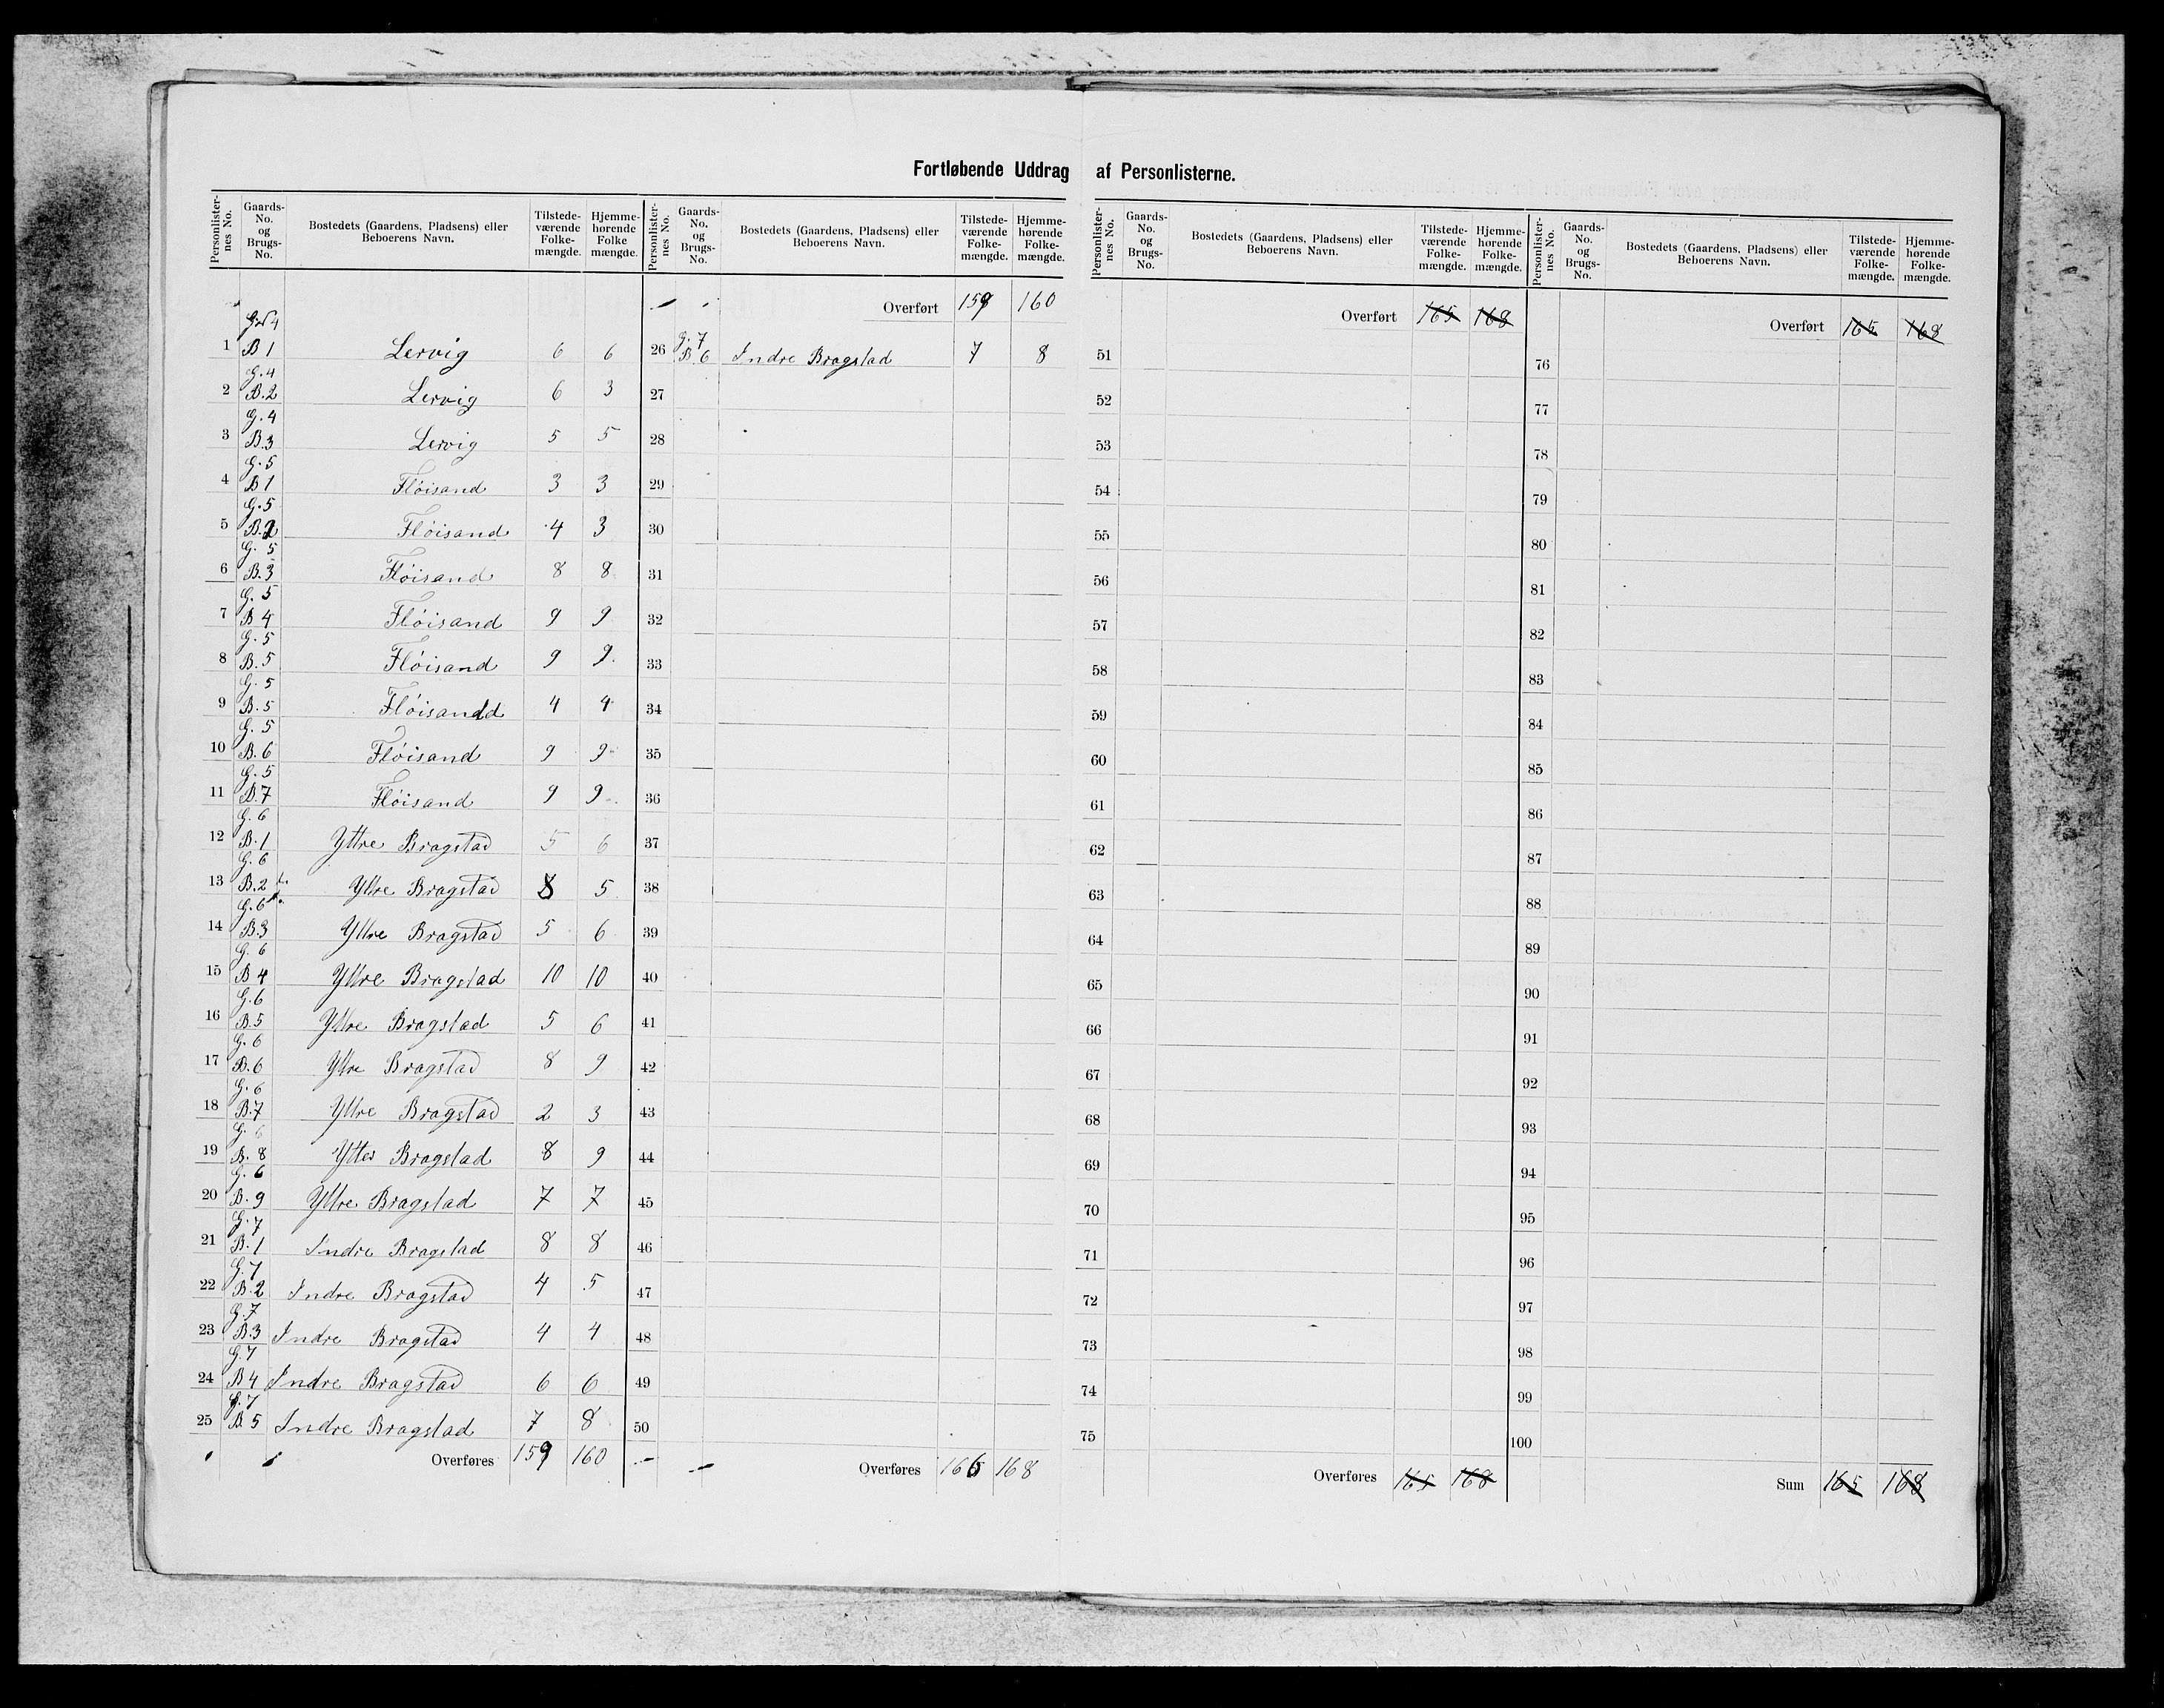 Fortløbende Uddrag af Personlisterne.
Personlister-nes No. | Gaards-No. og Brugs-No. | Bostedets (Gaardens, Pladsens) eller Beboerens Navn. | Tilstede-værende Folke-mængde. | Hjemme-hørende Folke mængde.
1 | G. 4 B 1 | Lervig | 6 | 6
2 | G. 4 B. 2 | Lervig | 6 | 3
3 | G. 4 B. 3 | Lervig | 5 | 5
4 | G. 5 B 1 | Fløisand | 3 | 3
5 | G. 5 B. 2 | Fløisand | 4 | 3
6 | G. 5 B. 3 | Fløisand | 8 | 8
7 | G. 5 B 4 | Fløisand | 9 | 9
8 | G. 5 B. 5 | Fløisand | 9 | 9.
9 | G. 5 B. 5 | Fløisandd | 4 | 4
10 | G. 5 B. 6 | Fløisand | 9 | 9
11 | G. 5 B. 7 | Fløisand | 9 | 9
12 | G. 6 B. 1 | Yttre Bragstad | 5 | 6
13 | G. 6 B. 2 | Yttre Bragstad | 8 | 5
14 | G. 6 B. 3 | Yttre Bragstad | 5 | 6
15 | G. 6 B 4 | Yttre Bragstad | 10 | 10
16 | G. 6 B. 5 | Yttre Bragstad | 5 | 6
17 | G. 6 B. 6 | Yttre Bragstad | 8 | 9
18 | G. 6 B. 7 | Yttre Bragstad | 2 | 3
19 | G. 6 B. 8 | Ytter Bragstad | 8 | 9
20 | G. 6 B. 9 | Yttre Bragstad | 7 | 7
21 | G. 7 B. 1 | Indre Bragstad | 8 | 8
22 | G. 7 B. 2 | Indre Bragstad | 4 | 5
23 | G. 7 B. 3 | Indre Bragstad | 4 | 4
24 | G. 7 B 4 | Indre Bragstad | 6 | 6
25 | G. 7 B. 5 | Indre Bragstad | 7 | 8
Overføres | 159 | 160
Personlister-nes No. | Gaards-No. og Brugs-No. | Bostedets (Gaardens, Pladsens) eller Beboerens Navn. | Tilstede-værende Folke-mængde. | Hjemme-hørende Folke-mængde.
Overført | 159 | 160
26 | G. 7 B. 6 | Indre Bragstad | 7 | 8
27
28
29
30
31
32
33
34
35
36
37
38
39
40
41
42
43
44
45
46
47
48
49
50
Overføres | 166 | 168
Personlister-nes No. | Gaards-No. og Brugs-No. | Bostedets (Gaardens, Pladsens) eller Beboerens Navn. | Tilstede-værende Folke-mængde. | Hjemme-hørende Folke-mængde.
Overført | 165 | 168
51
52
53
54
55
56
57
58
59
60
61
62
63
64
65
66
67
68
69
70
71
72
73
74
75
Overføres | 165 | 168
Personlister-nes No. | Gaards-No. og Brugs-No. | Bostedets (Gaardens, Pladsens) eller Beboerens Navn. | Tilstede-værende Folke-mængde. | Hjemme-hørende Folke-mængde.
Overført | 165 | 168
76
77
78
79
80
81
82
83
84
85
86
87
88
89
90
91
92
93
94
95
96
97
98
99
100
Sum | 165 | 168